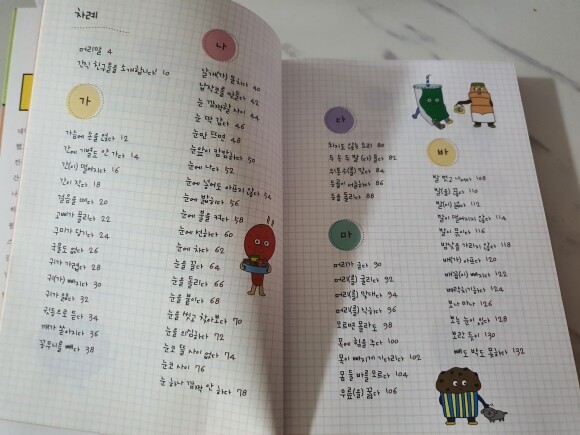 차례
머리말 4
간식 친구들을 소개합니다! 10
가
가슴에 손을 얹다 12
간에 기별도 안 가다 14
간(이) 떨어지다 16
간이 작다 18
걸음을 떼다 20
고배가 물리다 22
구미가 당기다 24
국물도 없다 26
귀가 가렵다 28
귀(가) 빠지다 30
귀가 얇다 32
뒷등으로 듣다 34
깨가 쏟아지다 36
꽁무니를 빼다 38
나
날개(가) 돋치다 40
납작코를 만들다 42
눈 깜짝할 사이 44
눈 딱 감다 46
눈만 뜨면 48
눈앞이 캄캄하다 50
눈에 나다 52
눈에 넣어도 아프지 않다 54
눈에 밟히다 56
눈에 불을 켜다 58
눈에 선하다 60
눈에 차다 62
눈을 끌다 64
눈을 돌리다 66
눈을 붙이다 68
눈을 씻고 찾아보다 70
눈을 의심하다 72
눈코 뜰 사이 없다 74
눈코 사이 76
눈 하나 깜짝 안 하다 78
다
80
두 손 두 발 (다) 들다 82
뒤통수(를) 맞다 84
등골이 서늘하다 86
등을 돌리다 88
마
머리가 굳다 90
머리(를) 굴리다 92
머리(를) 맞대다 94
머리(를) 식히다 96
모르면 몰라도 98
목에 힘을 주다 100
목이 빠지게 기다리다 102
몸 둘 바를 모르다 104
무릎(을) 꿇다 106
바
발 벗고 나서다 108
발(을) 끊다 110
발(이) 넓다 112
발이 떨어지지 않다 114
발이 묶이다 116
밤낮을 가리지 않다 118
배(가) 아프다 120
배꼽(이) 빠지다 122
배꼽시계 124
보나 마나 126
보는 눈이 있다 128
보란 듯이 130
빼도 박도 못하다 132